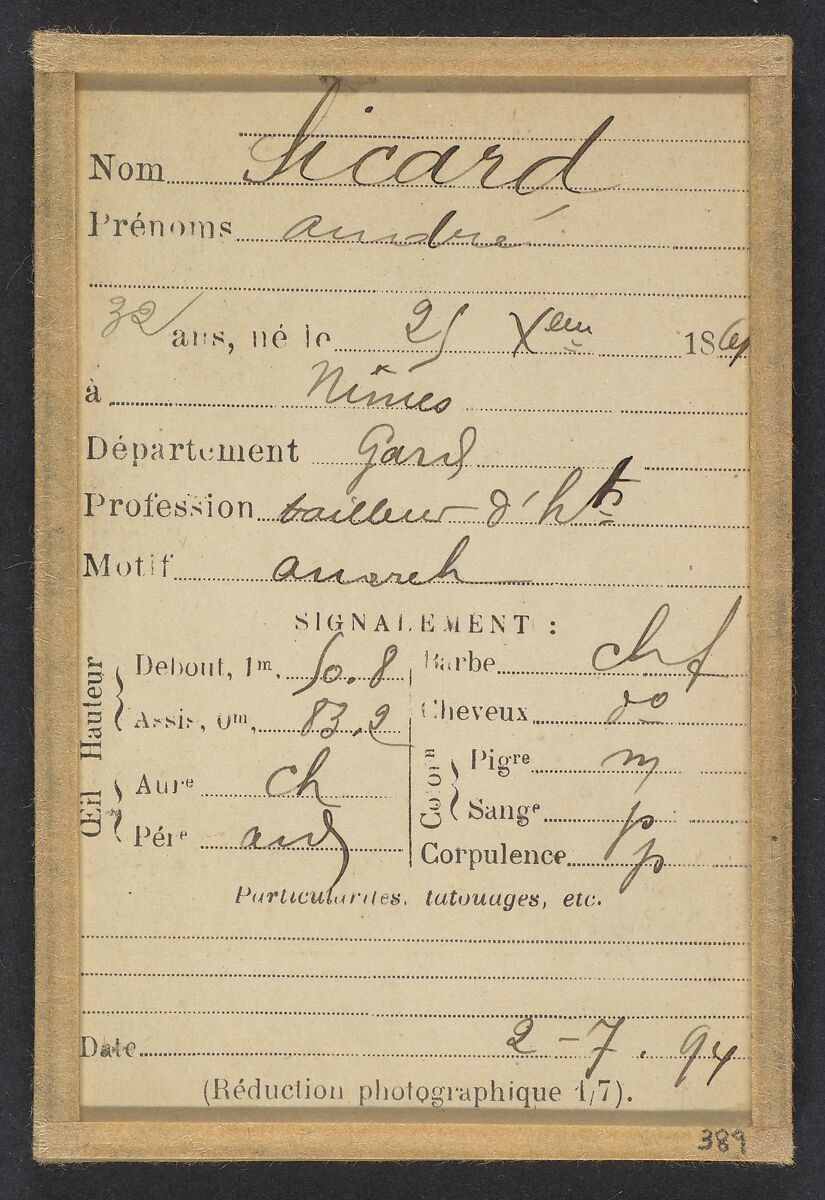 Nom Sicard
Prénoms andré
32 ans, né le 25 Xbre 1861
à Nîmes
Département Gard
Profession tailleur d'hts
Motif anarch
SIGNALEMENT :
Hauteur
Debout, 1m, 50.8
Assis, 0m, 83.2
Œil
Aure ch
Pére
Barbe ch f
Cheveux do
Coloron
Pigre m
Sange p
Corpulence p
Particularités, tatouages, etc.
Date 2-7.94
(Réduction photographique 1/7).
389